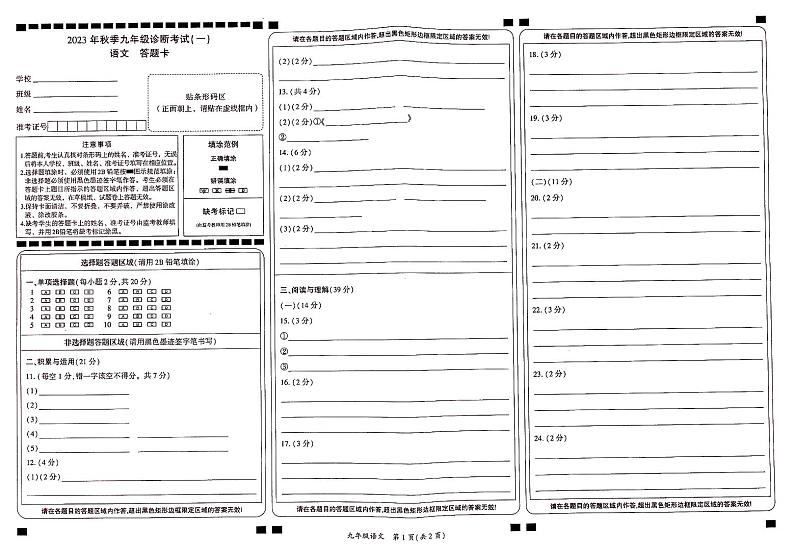 2023 年秋季九年级诊断考试(一)
语文 答题卡
学校
班级
姓名
准考证号
贴条形码区
(正面朝上，请贴在虚线框内)
注意事项
1.答题前,考生认真核对条形码上的姓名、准考证号,无误
后将本人学校、班级、姓名、准考证号填写在相应位置。
2.选择题填涂时，必须使用2B铅笔按■图示规范填涂;
非选择题必须使用黑色墨迹签字笔作答。考生必须在
答题卡上题目所指示的答题区域内作答，超出答题区
域的答案无效，在草稿纸、试题卷上答题无效。
3.保持卡面清洁、不要折叠、不要弄破，严禁使用涂改
液、涂改胶条。
4.缺考学生的答题卡上的姓名、准考证号由监考教师填
写，并用2B铅笔将缺考标记涂黑。
填涂范例
正确填涂
错误填涂
缺考标记
(由监考教师用2B铅笔填涂)
选择题答题区域(请用2B铅笔填涂)
一、单项选择题(每小题2分,共20分)
1 A B C D 6 A B C D
2 A B C D 7 A B C D
3 A B C D 8 A B C D
4 A B C D 9 A B C D
5 A B C D 10 A B C D
非选择题答题区域(请用黑色墨迹签字笔书写)
二、积累与运用(21分)
11.(每空1分,错一字该空不得分。共7分)
(1)
(2)
(3)
(4)
(5)
12.(4分)
(1)(2分)
请在各题目的答题区域内作答,超出黑色矩形边框限定区域的答案无效!
请在各题目的答题区域内作答,超出黑色矩形边框限定区域的答案无效!
(2)(2分)
13.(共4分)
(1)(2分)
(2)(2分)①《 》
②
14.(6分)
(1)(2分)
(2)(2分)
(3)(2分)
三、阅读与理解(39分)
(一)(14分)
15.(3分)
①
②
③
16.(2分)
17.(3分)
请在各题目的答题区域内作答,超出黑色矩形边框限定区域的答案无效!
请在各题目的答题区域内作答,超出黑色矩形边框限定区域的答案无效!
18.(3分)
19.(3分)
(二)(11分)
20.(2分)
21.(2分)
22.(3分)
23.(2分)
24.(2分)
请在各题目的答题区域内作答,超出黑色矩形边框限定区域的答案无效!
九年级语文 第1页(共2页)